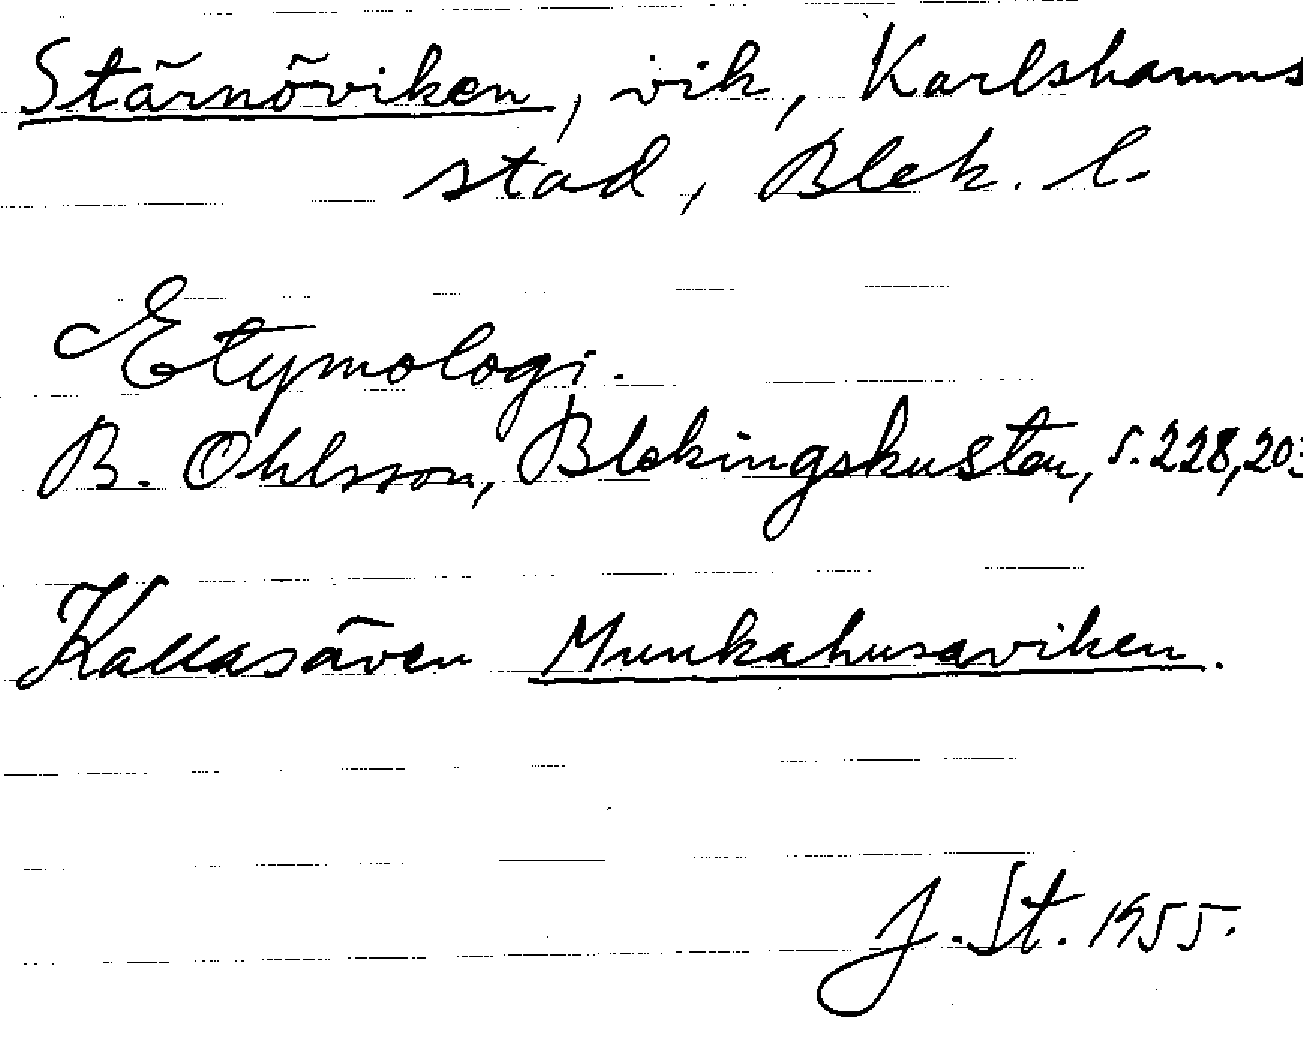 Stärnöviken, vik, Karlshamns
stad, Blek. l.
Etymologi.
B. Ohlsson, Blekingskusten, s. 228, 203
Kallas även Munkahusaviken.
J. St. 1955.